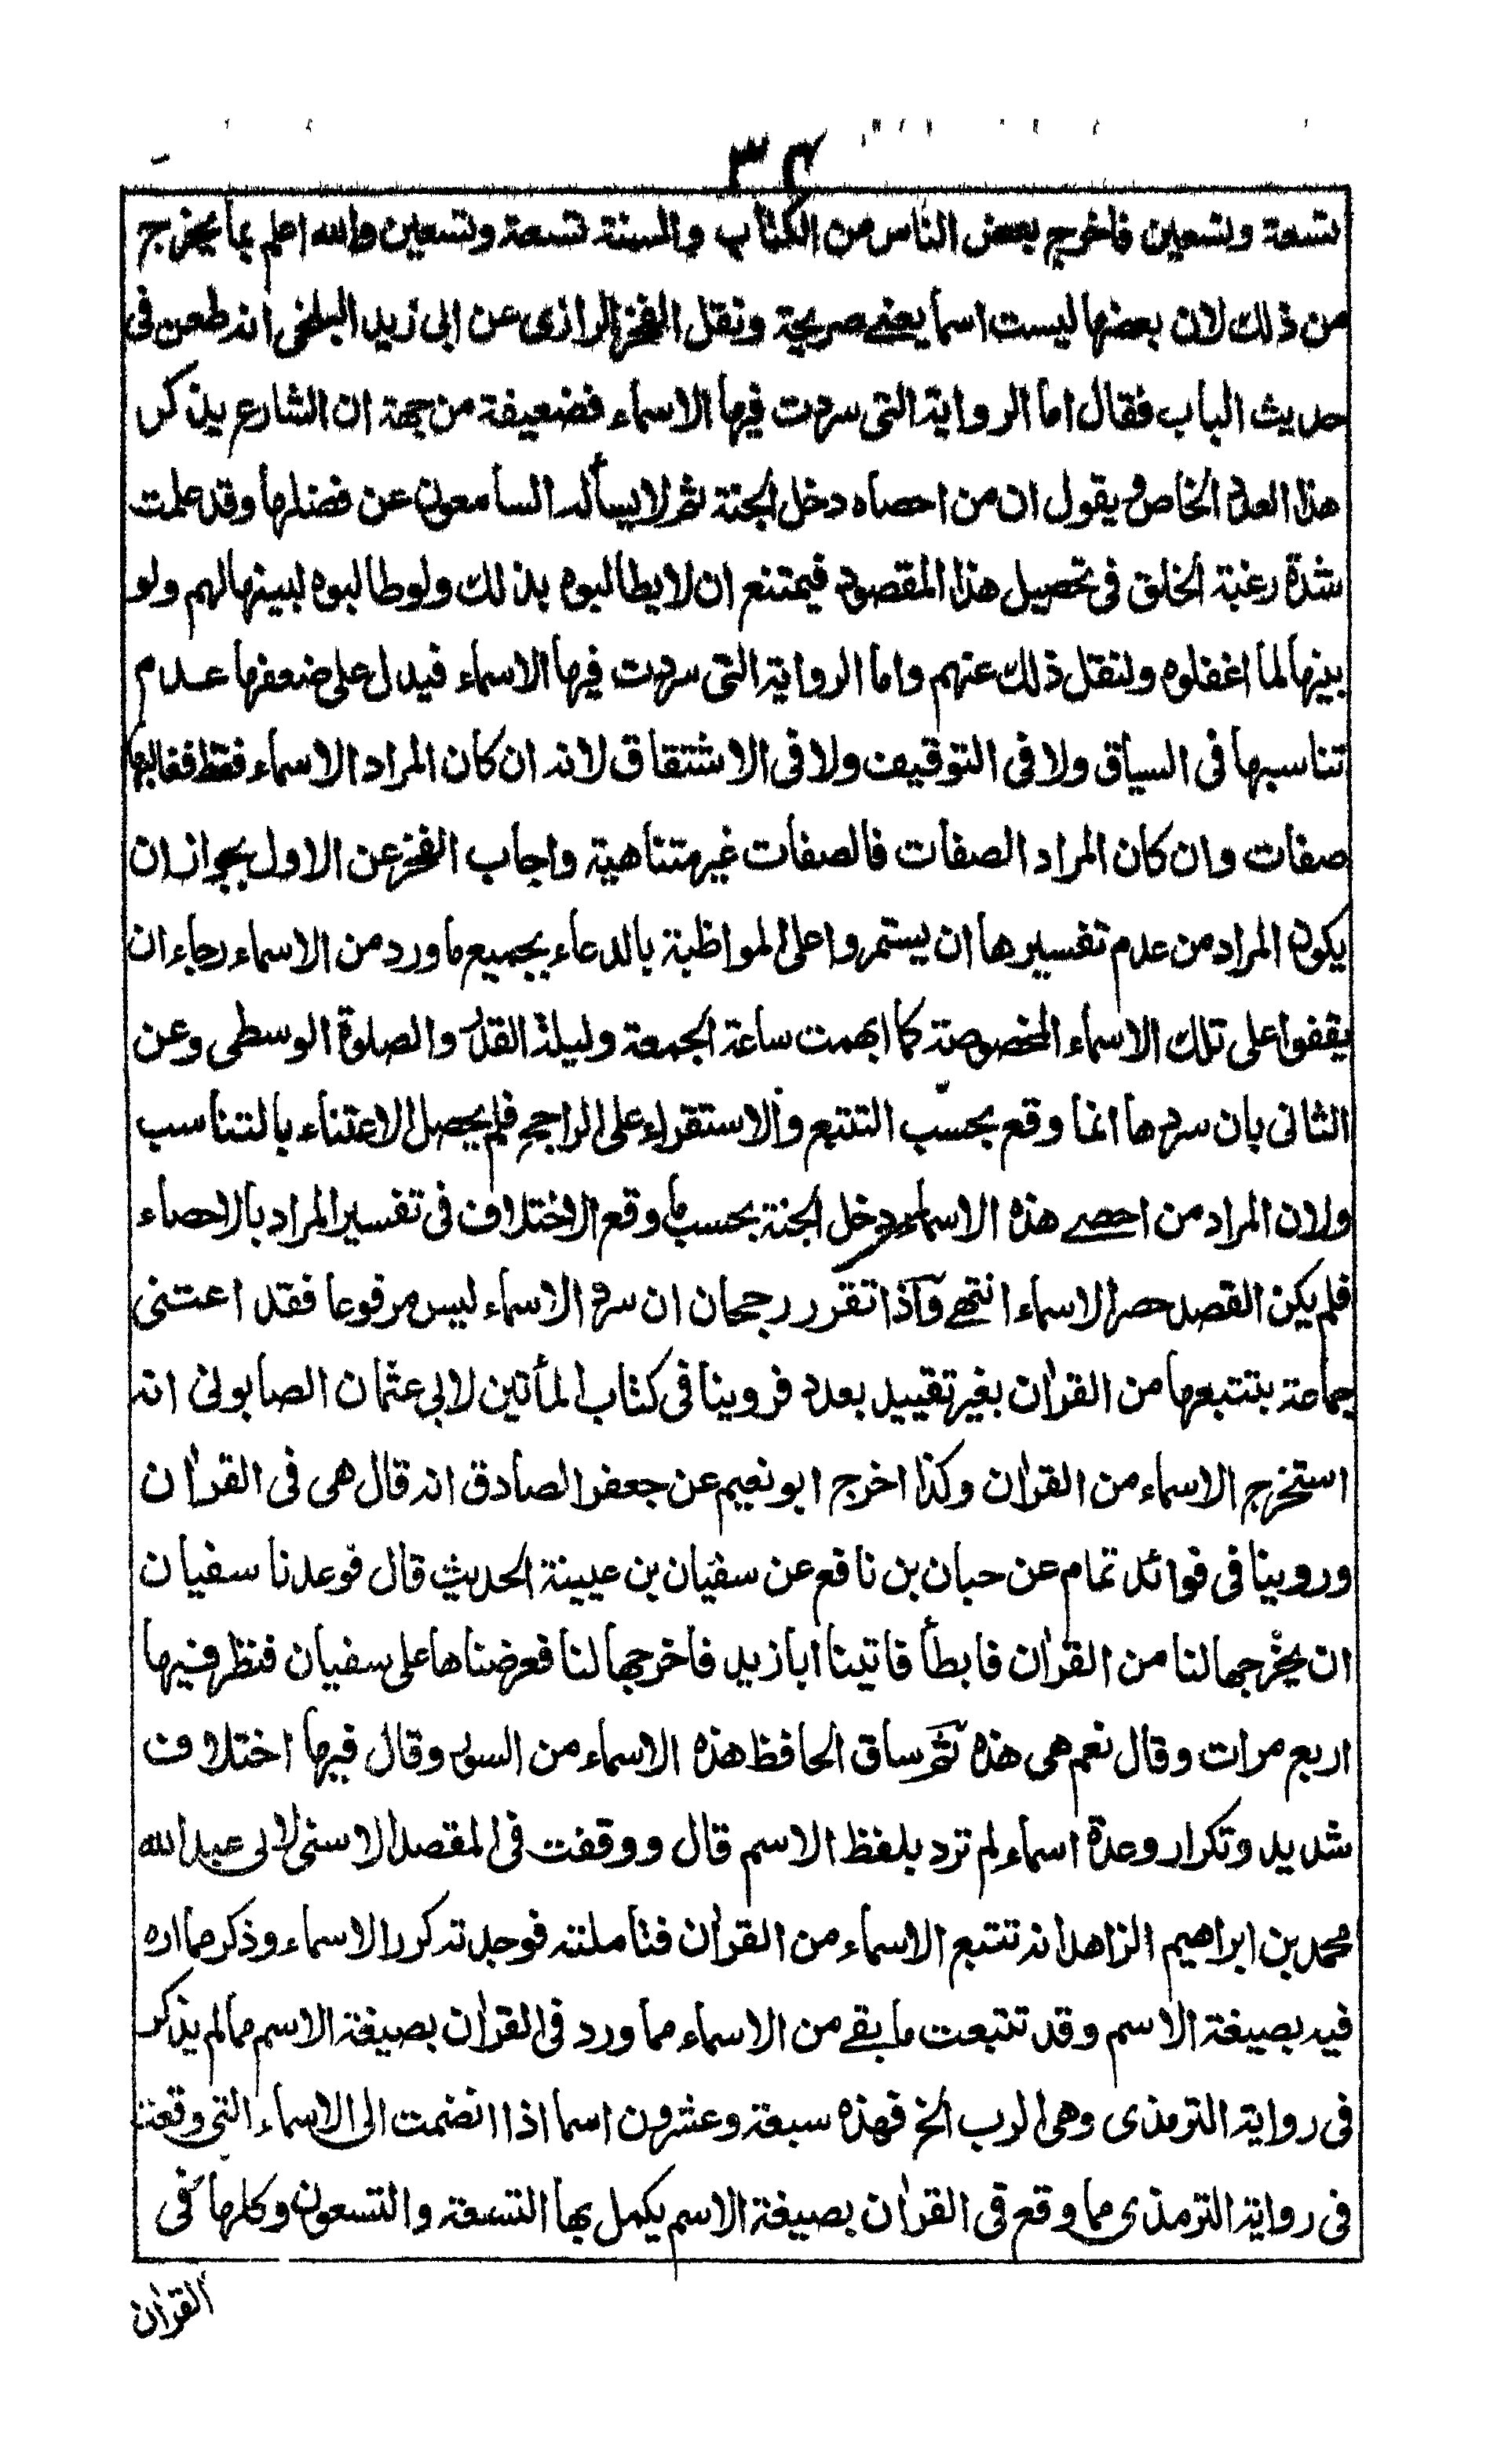 ٣٤
تسعة وتسعين فاخرج بعض الناس من الكتاب والسنة تسعة وتسعين والله اعلم بما يخرج
من ذلك لان بعضها ليست اسما يعنى صريحة ونقل الفخر الرازى عن ابى زيد البلخى انه طعن فى
حديث الباب فقال اما الرواية التى سردت فيها الاسماء فضعيفة من جهة ان الشارع يذكر
هذا العدد الخاص ويقول ان من احصاه دخل الجنة ثم لا يسأله السامعون عن فضلها وقد علمت
شدة رغبة الخلق فى تحصيل هذا المقصود فيمتنع ان لا يطالبوه بذلك ولو طالبوه لبينها لهم ولو
بينها لما اغفلوه ولنقل ذلك عنهم واما الرواية التى سردت فيها الاسماء فيدل على ضعفها عدم
تناسبها فى السياق ولا فى التوقيف ولا فى الاشتقاق لانه ان كان المراد الاسماء فقط فغالبها
صفات وان كان المراد الصفات فالصفات غير متناهية واجاب الفخر عن الاول بجواز ان
يكون المراد من عدم تفسيرها ان يستمروا على المواظبة بالدعاء بجميع ما ورد من الاسماء رجاء ان
يقفوا على تلك الاسماء المخصوصة كما ابهمت ساعة الجمعة وليلة القدر والصلوة الوسطى وعن
الثانى بان سردها انما وقع بحسب التتبع والاستقراء على الراجح فلم يحصل الاعتناء بالتناسب
ولان المراد من احصى هذه الاسماء دخل الجنة بحسب ما وقع الاختلاف فى تفسير المراد بالاحصاء
فلم يكن القصد حصر الاسماء انتهى وآذا تقرر رجحان ان سرد الاسماء ليس مرفوعا فقد اعتنى
جماعة بتتبعها من القرأن بغير تقييد بعدد فروينا فى كتاب المأتين لابي عثمان الصابونى انه
استخرج الاسماء من القرأن وكذا اخرج ابو نعيم عن جعفر الصادق انه قال هى فى القرأن
وروينا فى فوائد تمام عن حبان بن نافع عن سفيان بن عيينة الحديث قال فوعدنا سفيان
ان يخرجها لنا من القرأن فابطأ فاتينا ابا زيد فاخرجها لنا فعرضناها على سفيان فنظر فيها
اربع مرات وقال نعم هى هذه ثم ساق الحافظ هذه الاسماء من السور وقال فيها اختلاف
شديد وتكرار وعدة اسماء لم ترد بلفظ الاسم قال ووقفت فى المقصد الاسنى لابى عبد الله
محمد بن ابراهيم الزاهد انه تتبع الاسماء من القرأن فتأملته فوجدته كرر الاسماء وذكر مما اره
فيه بصيغة الاسم وقد تتبعت ما بقى من الاسماء مما ورد فى القرأن بصيغة الاسم مما لم يذكر
فى رواية الترمذى وهى الرب الخ فهذه سبعة وعشرون اسما اذا انضمت الى الاسماء التى وقعت
فى رواية الترمذى مما وقع فى القرأن بصيغة الاسم يكمل بها التسعة والتسعون وكلها فى
القرأن